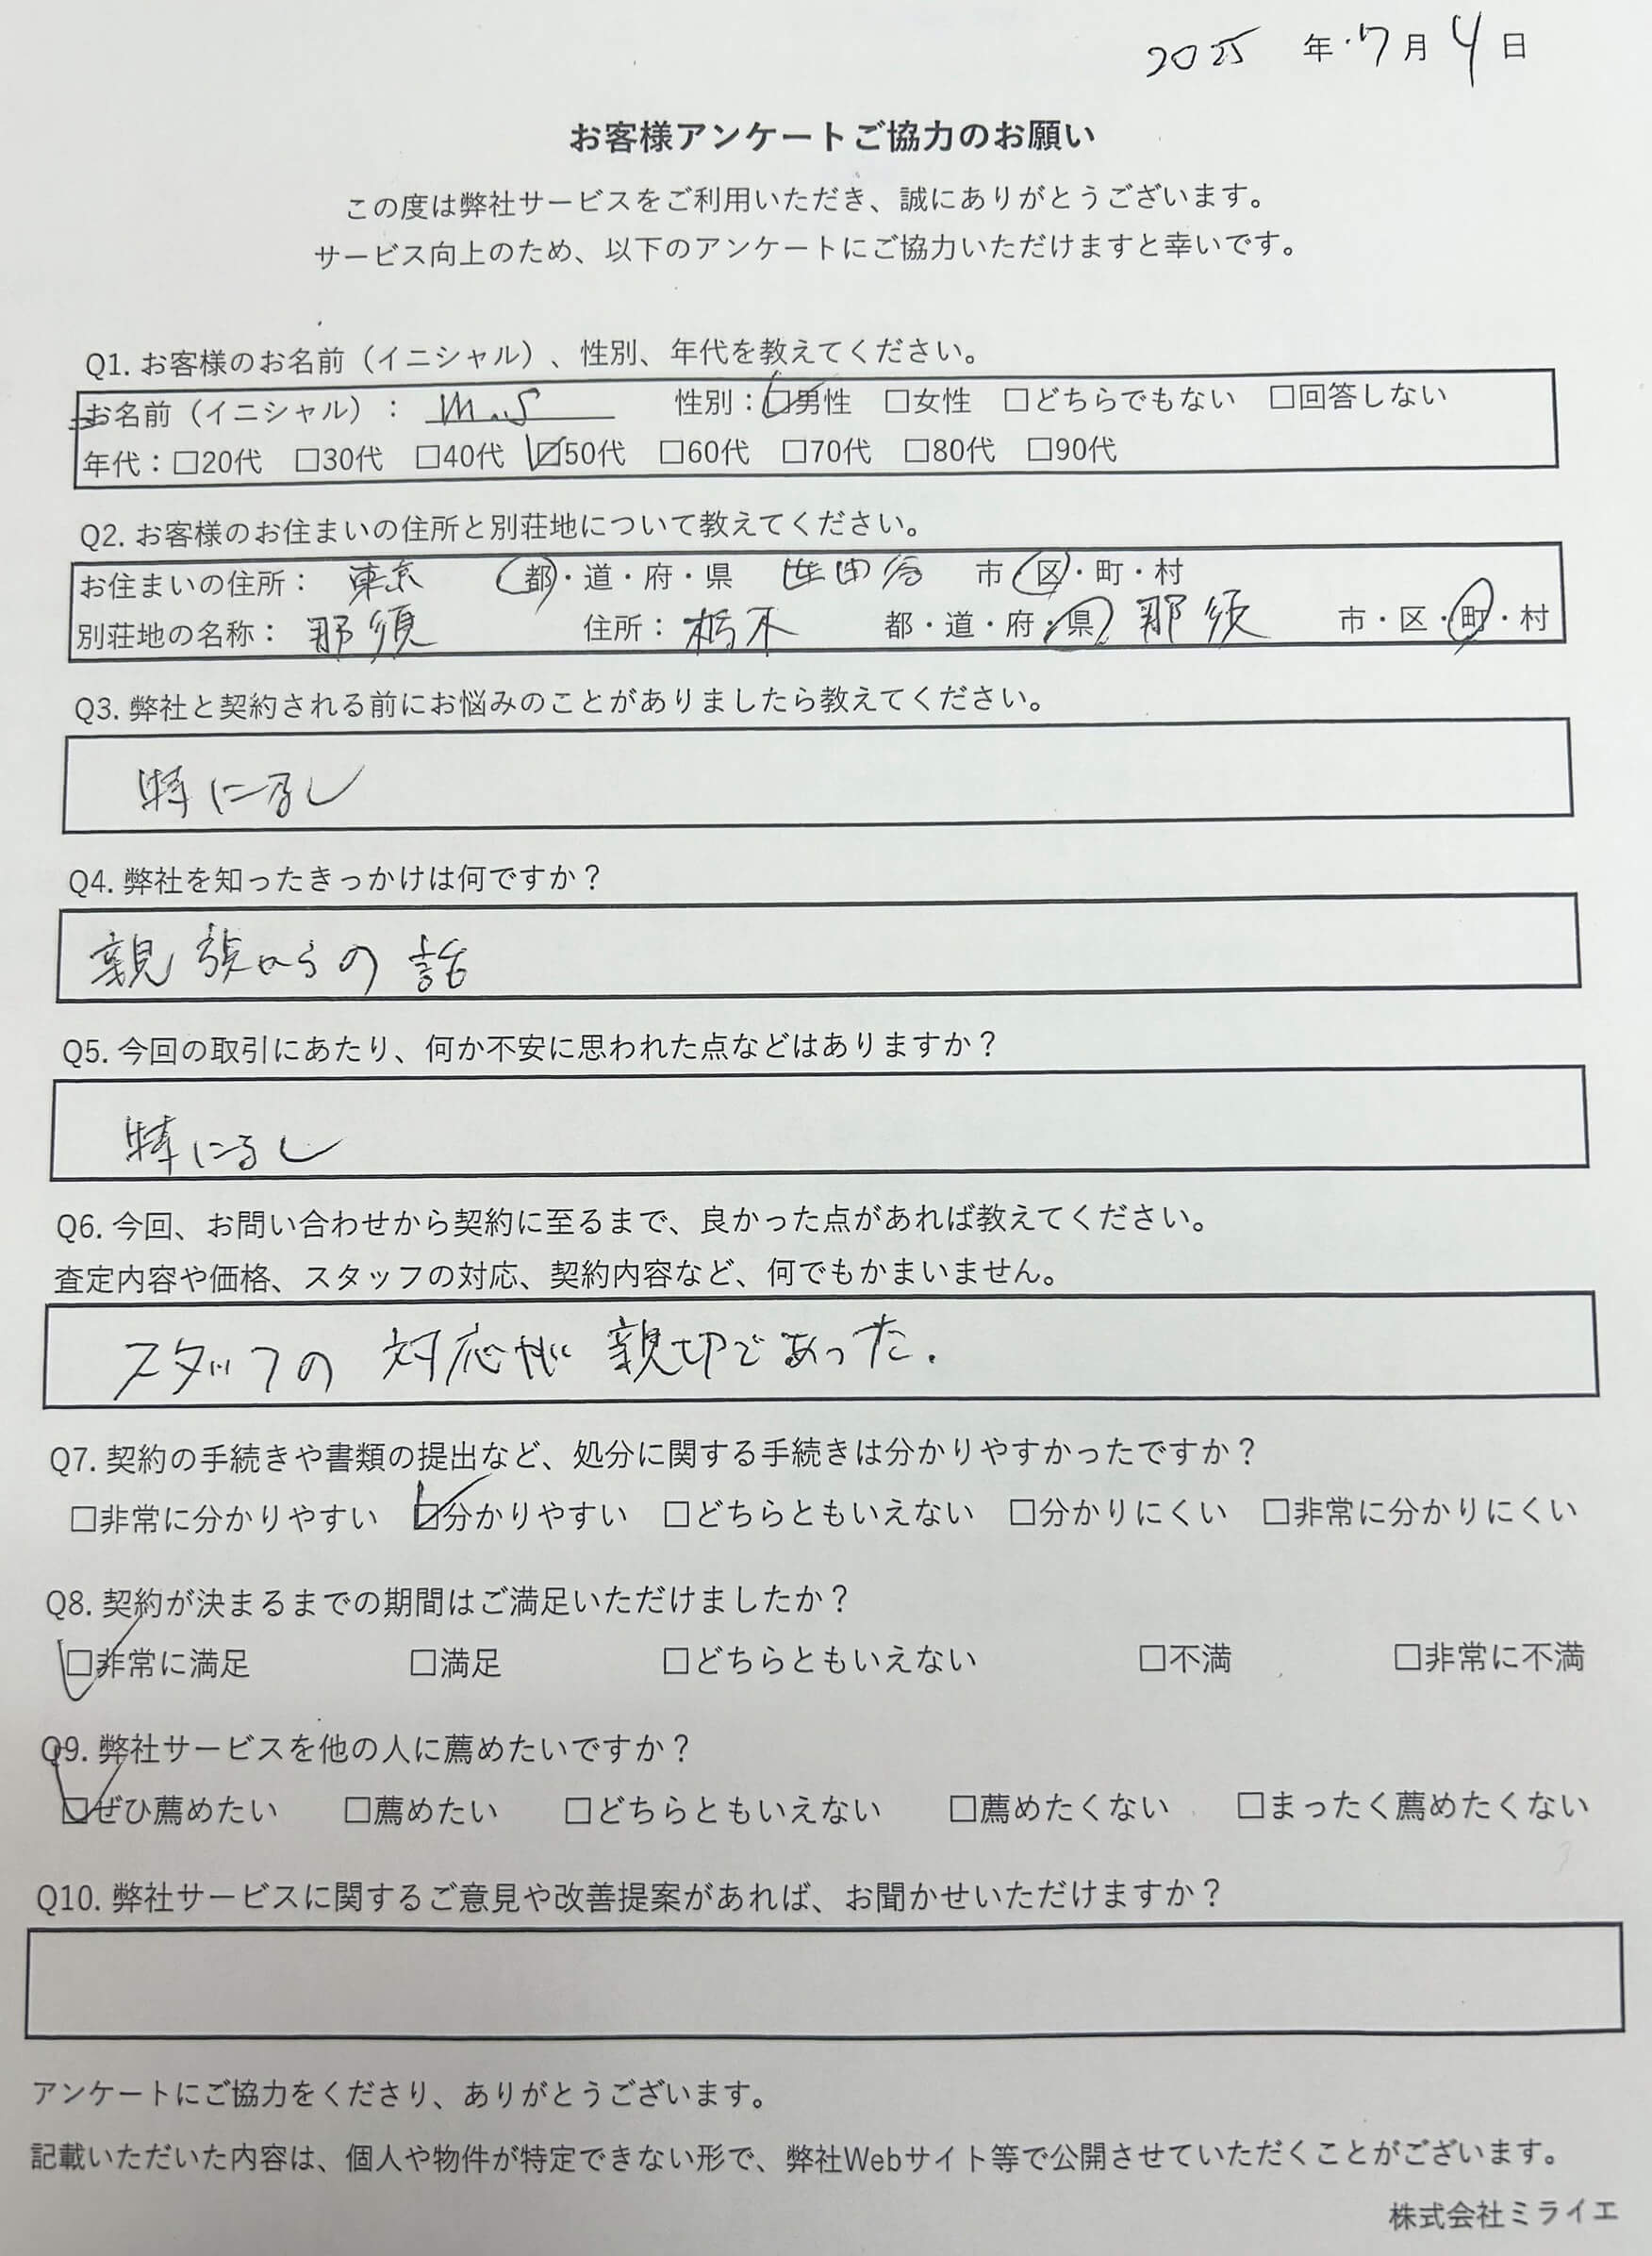 2025 年 7月 4日
お客様アンケートご協力のお願い
この度は弊社サービスをご利用いただき、誠にありがとうございます。
サービス向上のため、以下のアンケートにご協力いただけますと幸いです。
Q1. お客様のお名前（イニシャル）、性別、年代を教えてください。
お名前（イニシャル）： M.S 性別：☑男性 □女性 □どちらでもない □回答しない
年代：□20代 □30代 □40代 ☑50代 □60代 □70代 □80代 □90代
Q2. お客様のお住まいの住所と別荘地について教えてください。
お住まいの住所： 東京 都・道・府・県 世田谷 市・区・町・村
別荘地の名称： 那須 住所： 栃木 都・道・府・県 那須 市・区・町・村
Q3. 弊社と契約される前にお悩みのことがありましたら教えてください。
特になし
Q4. 弊社を知ったきっかけは何ですか？
親族からの話
Q5. 今回の取引にあたり、何か不安に思われた点などはありますか？
特になし
Q6. 今回、お問い合わせから契約に至るまで、良かった点があれば教えてください。
査定内容や価格、スタッフの対応、契約内容など、何でもかまいません。
スタッフの対応が親切であった.
Q7. 契約の手続きや書類の提出など、処分に関する手続きは分かりやすかったですか？
□非常に分かりやすい ☑分かりやすい □どちらともいえない □分かりにくい □非常に分かりにくい
Q8. 契約が決まるまでの期間はご満足いただけましたか？
☑非常に満足 □満足 □どちらともいえない □不満 □非常に不満
Q9. 弊社サービスを他の人に薦めたいですか？
☑ぜひ薦めたい □薦めたい □どちらともいえない □薦めたくない □まったく薦めたくない
Q10. 弊社サービスに関するご意見や改善提案があれば、お聞かせいただけますか？
アンケートにご協力をくださり、ありがとうございます。
記載いただいた内容は、個人や物件が特定できない形で、弊社Webサイト等で公開させていただくことがございます。
株式会社ミライエ